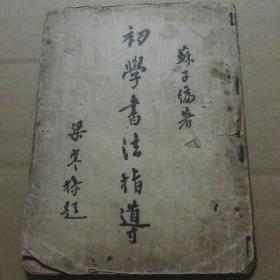 蘇子䌽著
初學書法指導
梁寒操題